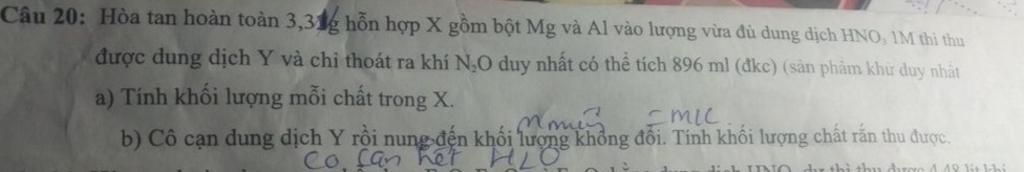 Câu 20: Hòa tan hoàn toàn 3,3 g hỗn hợp X gồm bột Mg và Al vào lượng vừa đủ dung dịch HNO₃ 1M thì thu
được dung dịch Y và chỉ thoát ra khí N₂O duy nhất có thể tích 896 ml (đkc) (sản phẩm khử duy nhất
a) Tính khối lượng mỗi chất trong X.
m muối = mKL
b) Cô cạn dung dịch Y rồi nung đến khối lượng không đổi. Tính khối lượng chất rắn thu được.
Cô cạn hết H2O
dịch HNO₃ dư thì thu được 4,48 lít khí